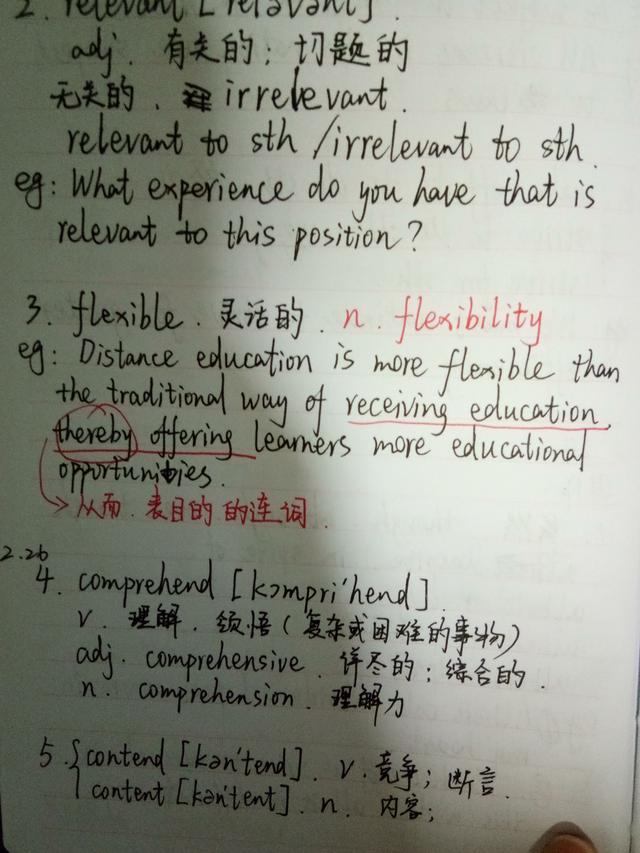 2. relevant [reləvənt].
adj. 有关的；切题的
无关的、irrelevant.
relevant to sth /irrelevant to sth.
eg: What experience do you have that is
relevant to this position?
3. flexible. 灵活的. n. flexibility
eg: Distance education is more flexible than
the traditional way of receiving education,
thereby offering learners more educational
opportunities.
→ 从而. 表目的的连词.
2.26
4. comprehend [kɔmpri'hend].
v. 理解. 领悟（复杂或困难的事物）
adj. comprehensive. 详尽的；综合的.
n. comprehension. 理解力
5. { contend [kən'tend]. v. 竞争；断言.
content [kən'tent]. n. 内容；